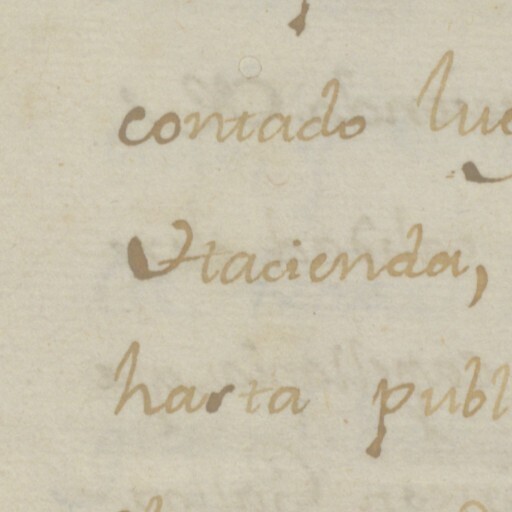 contado lug
Hacienda,
harta publ